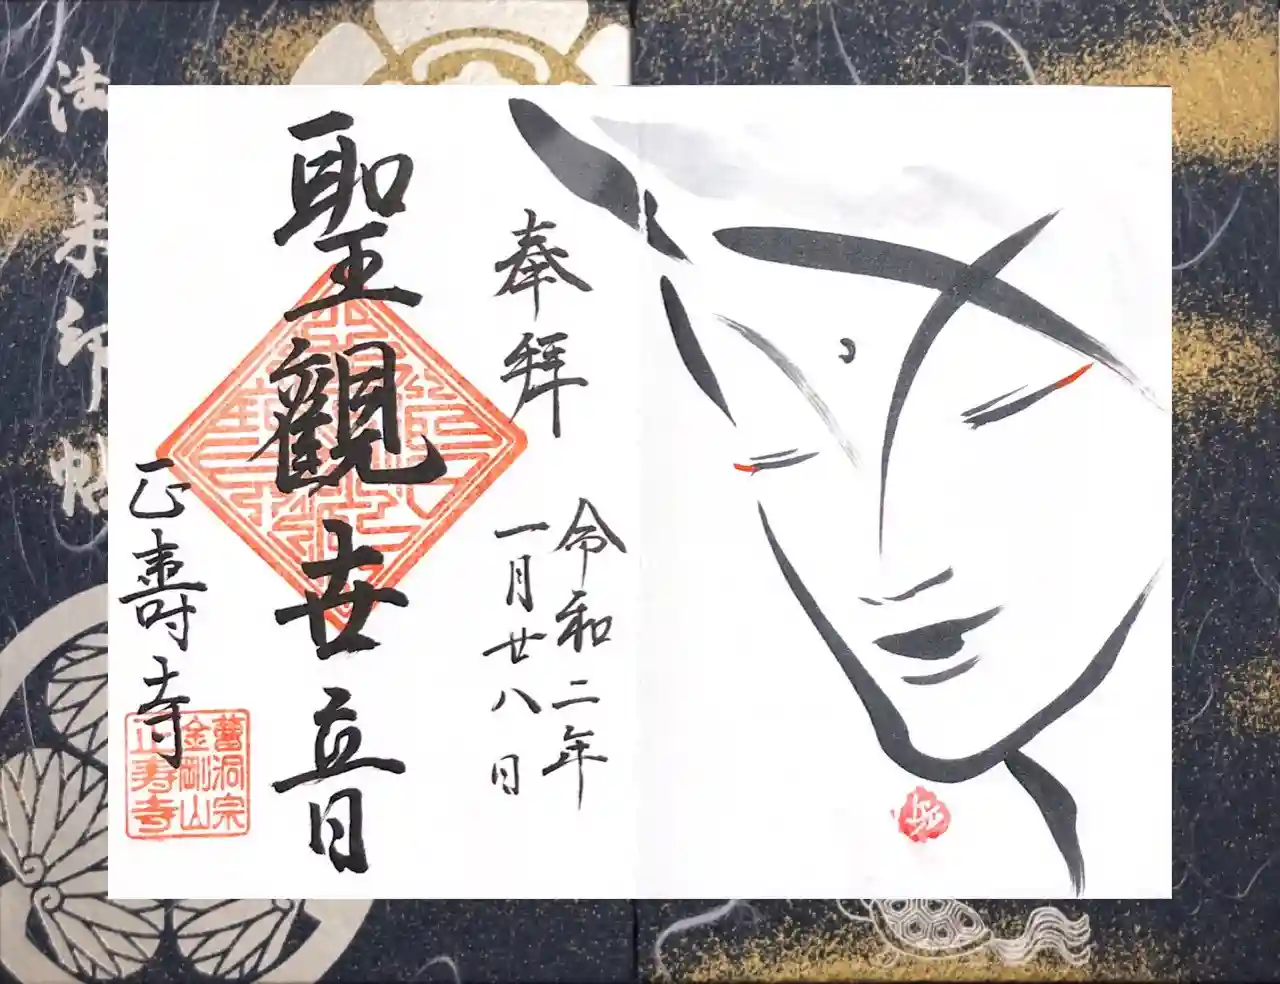 奉拝
令和二年
一月廿八日
聖觀世音
正壽寺
曹洞宗
金剛山
正寿寺
御朱印帖